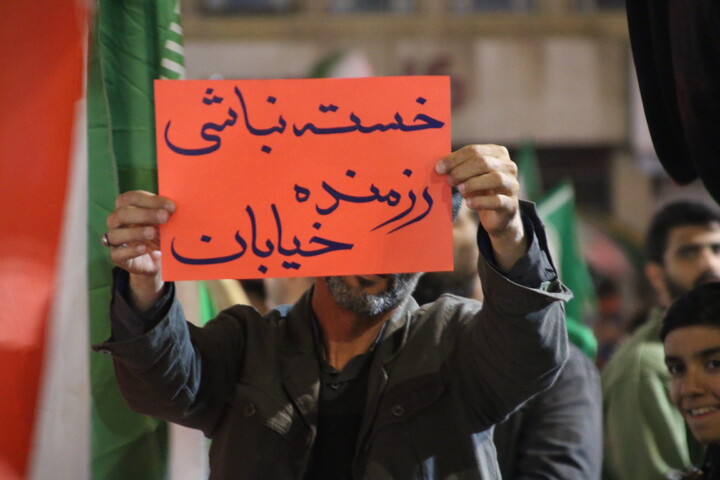 خسته نباشی
رزمنده
خیابان